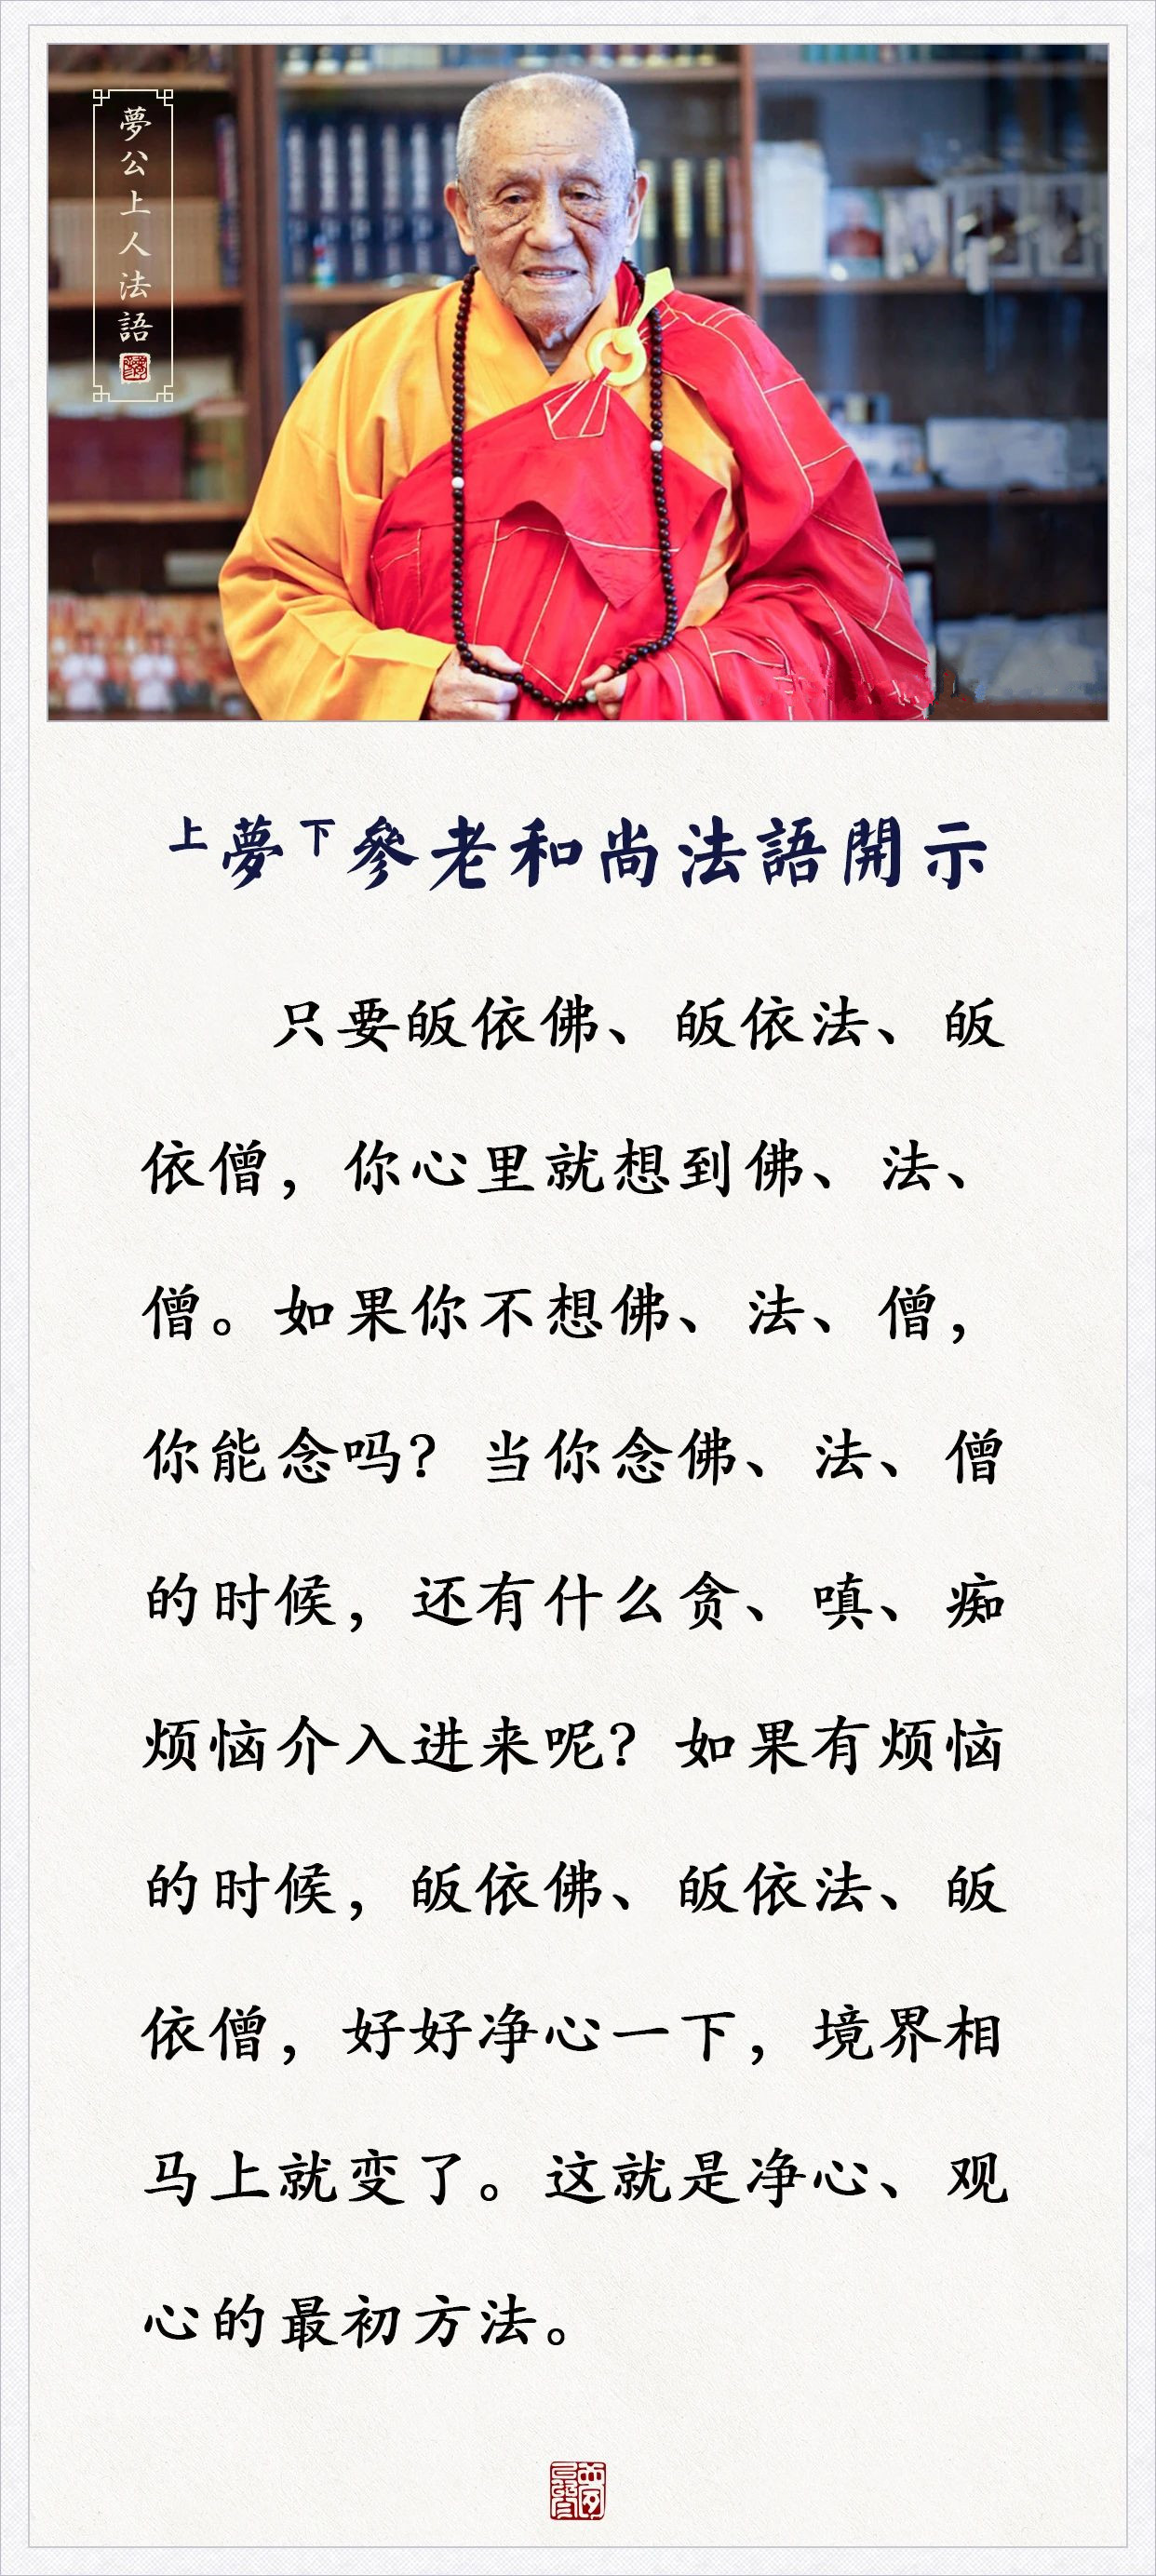 夢公上人法語
上夢下參老和尚法語開示
只要皈依佛、皈依法、皈
依僧，你心里就想到佛、法、
僧。如果你不想佛、法、僧，
你能念吗？当你念佛、法、僧
的时候，还有什么贪、嗔、痴
烦恼介入进来呢？如果有烦恼
的时候，皈依佛、皈依法、皈
依僧，好好净心一下，境界相
马上就变了。这就是净心、观
心的最初方法。